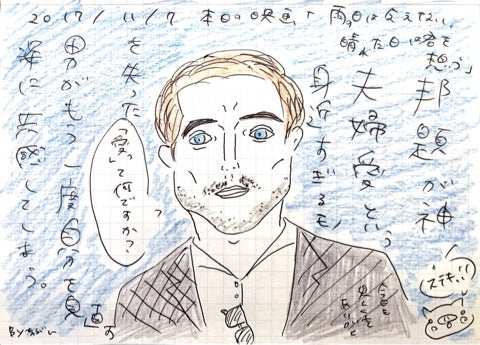 2017/11/7 本日の映画「雨の日は会えない、
晴れた日は君を
想う」
邦題が神
夫婦愛という
身近すぎるモノ
を失った
男がもう一度自分を見直す
姿に共感してしまう。
「愛」って何ですか?
ステキ!!
By